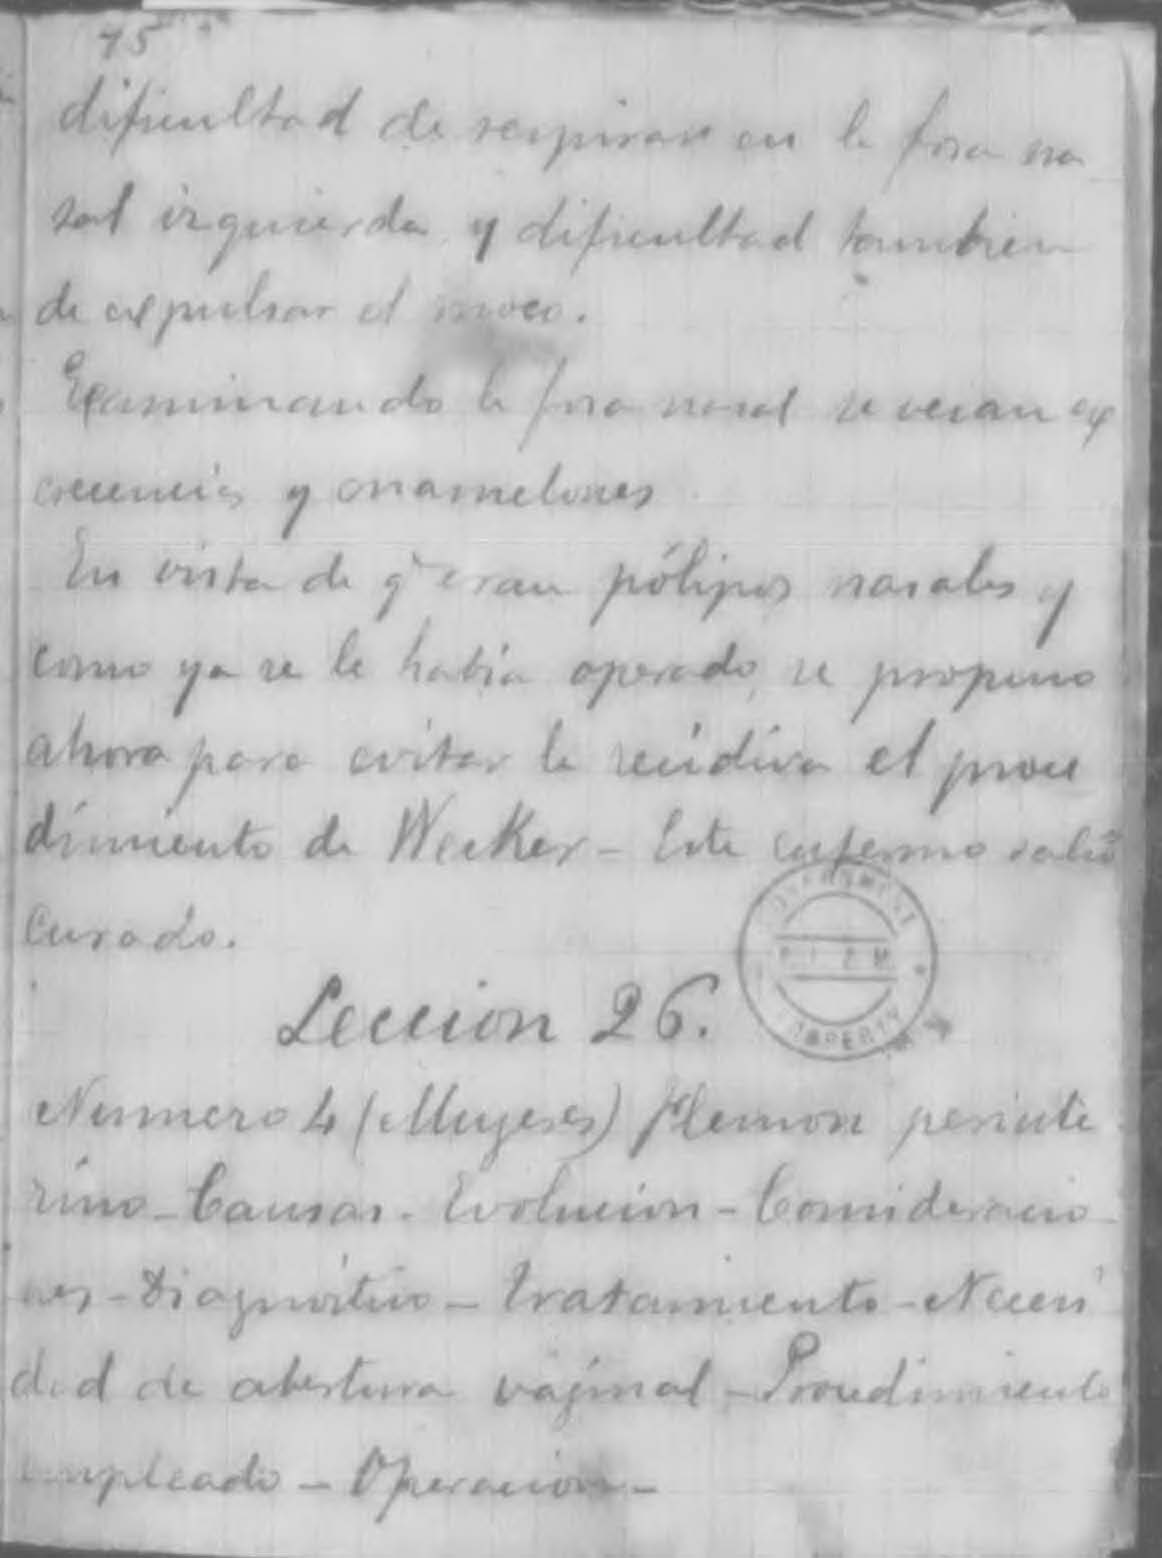 75
dificultad de respirar en la fosa na
sal izquierda y dificultad tambien
de expulsar el moco.
Examinando la fosa nasal se veian ex
crecencias y mamelones
En vista de q' eran pólipos nasales y
como ya se le habia operado, se propuso
ahora para evitar la recidiva el proce
dimiento de Wecker - Este enfermo salió
curado.
GOVERNMENT
PROPERTY
Leccion 26.
Numero 4 (Mujeres) Flemon periute
rino - Causas - Evolucion - Consideracio
nes - Diagnóstico - Tratamiento - Necesi
dad de abertura vaginal - Procedimiento
empleado - Operacion -